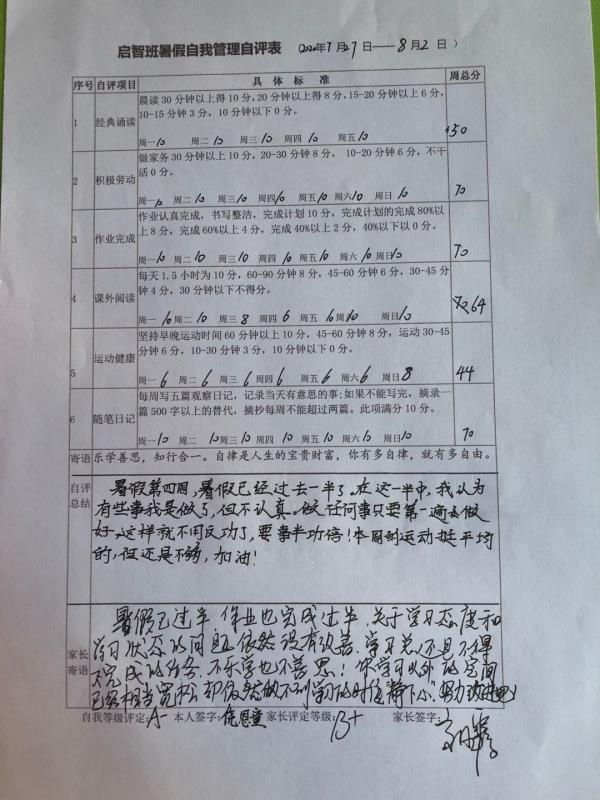 启智班暑假自我管理自评表 (2020年7月27日——8月2日)
序号 自评项目 具体标准 周总分
晨读30分钟以上得10分,20分钟以上得8分,15-20分钟以上6分,
1 经典诵读 10-15分钟3分,10分钟以下0分。
周一10 周二10 周三10 周四10 周五10 50
做家务30分钟以上10分,20-30分钟8分, 10-20分钟6分,不干
2 积极劳动 活0分。
周一10 周二10 周三10 周四10 周五10 周六10 周日10 70
作业认真完成,书写整洁,完成计划10分,完成计划的完成80%以
3 作业完成 上8分,完成60%以上4分,完成40%以上2分,40%以下以0分。
周一10 周二10 周三10 周四10 周五10 周六10 周日10 70
每天1.5小时为10分,60-90分钟8分,45-60分钟6分,30-45分
4 课外阅读 钟4分,30分钟以下不得分。
周一10 周二10 周三8 周四6 周五 周六10 周日10 64
坚持早晚运动时间60分钟以上10分,45-60分钟8分,运动30-45
5 运动健康 分钟6分,10-30分钟3分,10分钟以下0分。
周一6 周二6 周三6 周四6 周五6 周六6 周日8 44
每周写五篇观察日记,记录当天有意思的事;如果不能写完,摘录一
6 随笔日记 篇500字以上的替代,摘抄每周不能超过两篇。此项满分10分。
周一10 周二10 周三10 周四10 周五10 周六10 周日10 70
寄语 乐学善思,知行合一。自律是人生的宝贵财富,你有多自律,就有多自由。
自评总结
暑假第四周,暑假已经过去一半了。在这一半中,我认为
有些事我是做了,但不认真。做任何事只要第一遍去做
好,这样就不用反功了,要事半功倍!本周的运动挺平均
的,但还是不够,加油!
家长寄语
暑假已过半,作业也完成过半,关于学习态度和
学习状态的问题依然没有改善,学习总还是不得
不完成的任务,不乐学也不善思!你学习以外的空间
已经相当宽松,却依然做不到学习的时候静下心,努力
自我等级评定:A- 本人签字: 家长评定等级:B+ 家长签字: